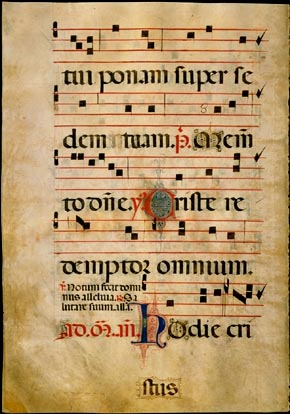 tui ponam super se
dem tuam. p̄. Mem̄
to dn̄e. ℣ Christe re
demptor omnium.
℣ Notum fecit domi
nus alleluia. ℟ Sa
lutare suum. alla.
Ad. Mā. añ. Hodie cri
stus